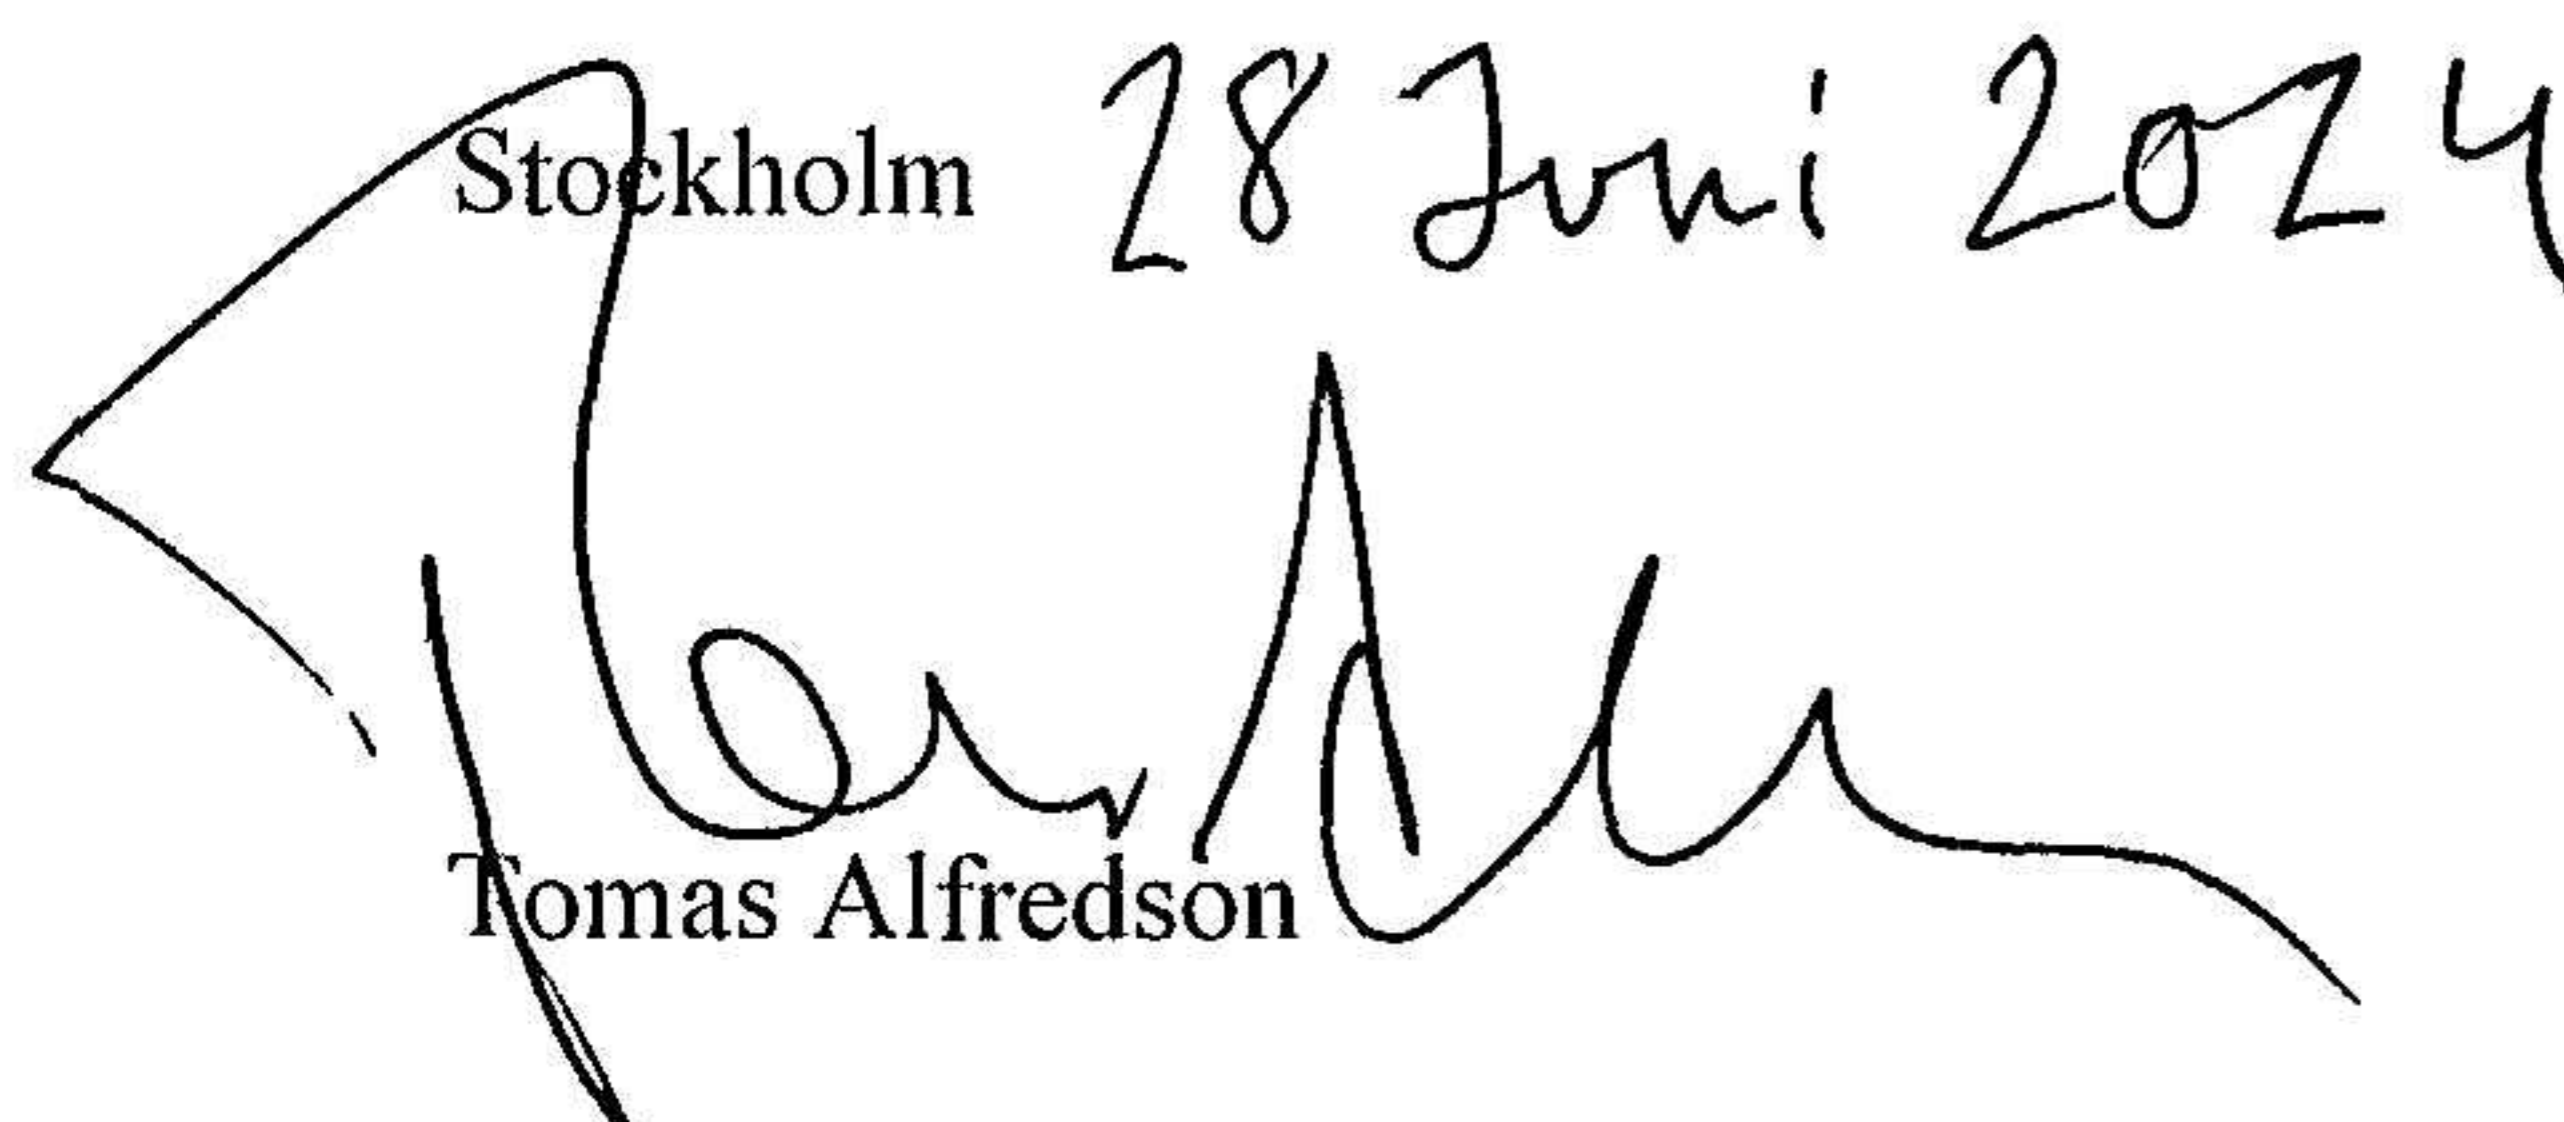 Stockholm 28 Juni 2024
Tomas Alfredson